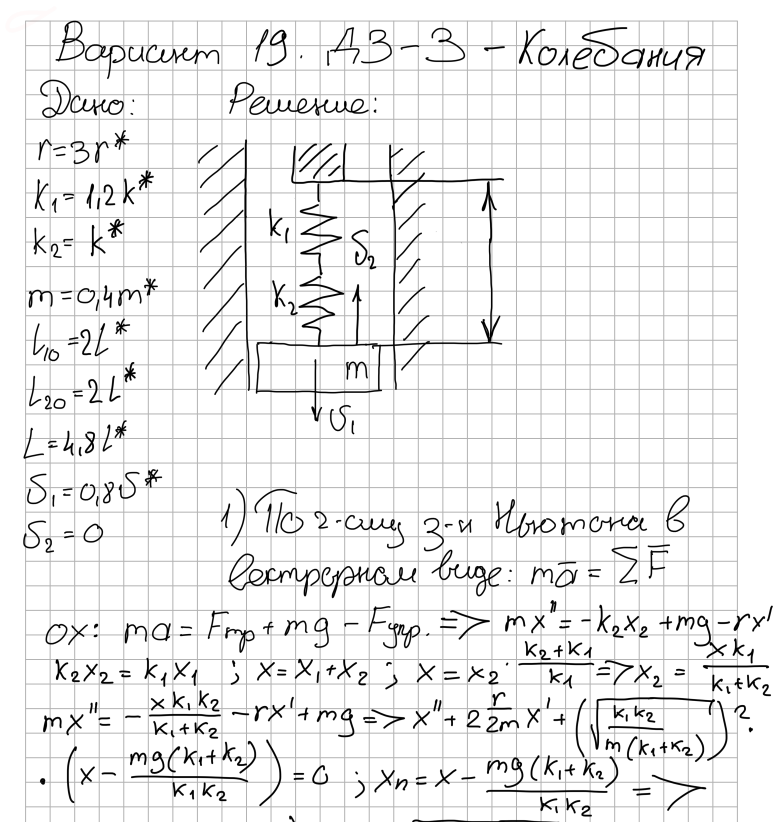 Вариант 19. ДЗ-3 - Колебания
Дано: Решение:
r=3r*
K₁=1,2k*
k₂= k*
m=0,4m*
L₁₀=2L*
L₂₀=2L*
L=4,8L*
S₁=0,8S*
S₂=0
k₁
S₂
k₂
m
S₁
1) По 2-ому з-н Ньютона в
вектрорном виде: mā = ΣF̄
ox: ma = Fтр + mg - Fупр. => mx'' = -k₂x₂ + mg - rx'
k₂x₂ = k₁x₁ ; x = x₁+x₂ ; x = x₂ · (k₂+k₁)/k₁ => x₂ = xk₁/(k₁+k₂)
mx'' = - xk₁k₂/(k₁+k₂) - rx' + mg => x'' + 2 r/2m x' + (√(k₁k₂/(m(k₁+k₂))))² ·
· (x - mg(k₁+k₂)/(k₁k₂)) = 0 ; xₙ = x - mg(k₁+k₂)/(k₁k₂) =>